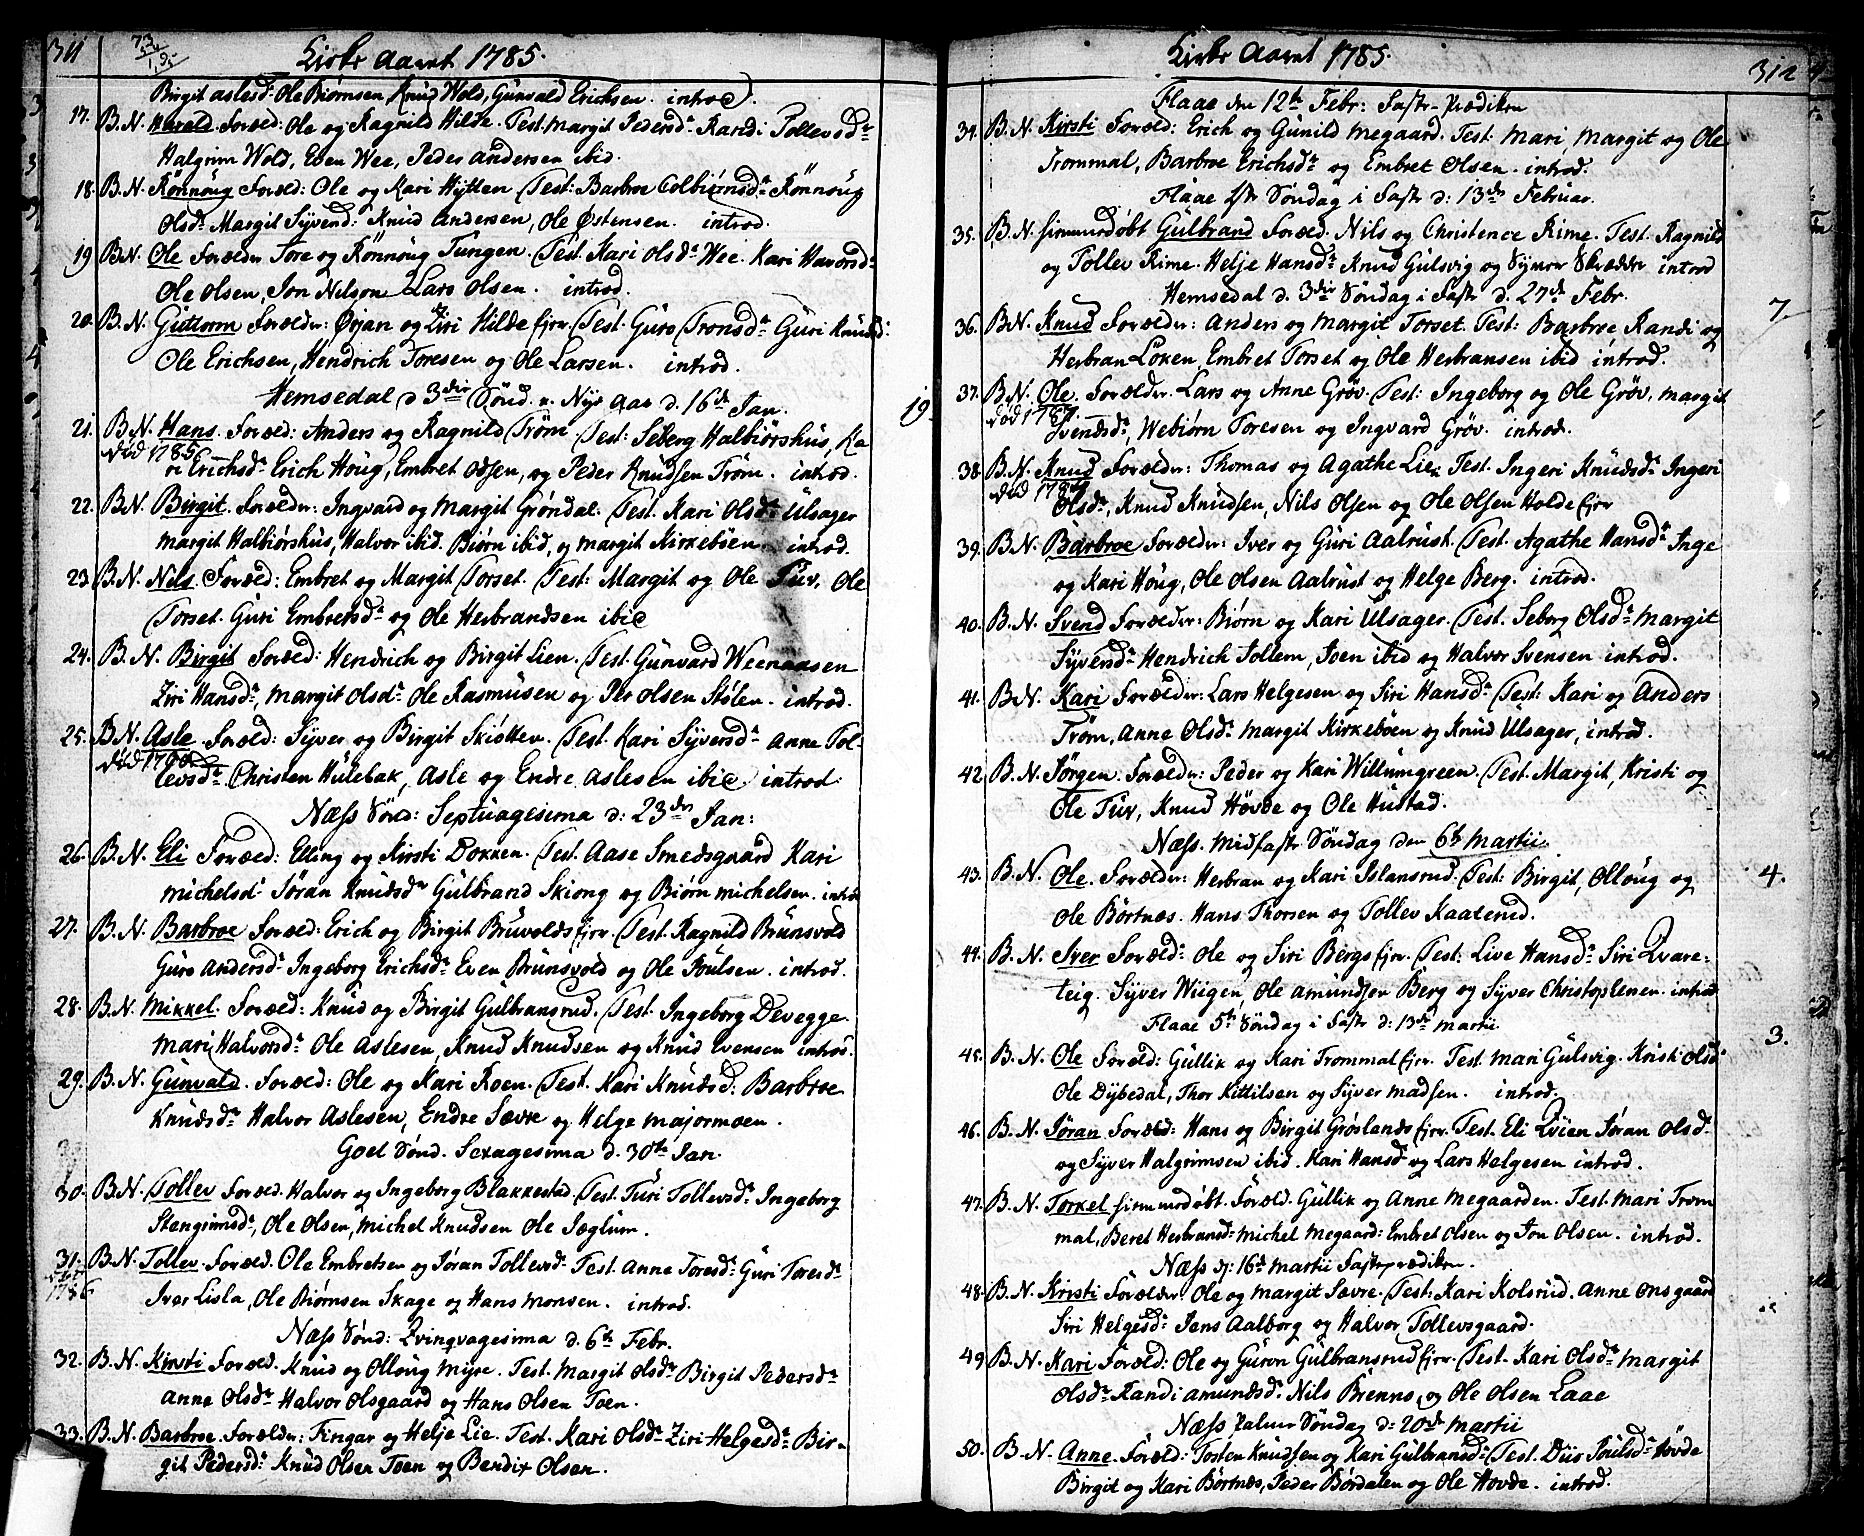 311
Kirke Aaret 1785.
Birgit Aslesd. Ole Biørnsen, Knud Wold, Gunvald Erichsen. introd.
17. B.N. Harald. Foræld: Ole og Ragnild Hilde. Test. Margit Pedersd. Randi Tollevsd.
Halgrim Wold, Even Wee, Peder Andersen ibid.
18. B.N. Rønnoug Foræld: Ole og Kari Hytten Test: Barbroe Colbiørnsd. Rønnoug
Olsd. Margit Syversd: Knud Andersen, Ole Østensen. introd.
19 B.N. Ole Forældr Tore og Rønnoug Tungen. Test. Kari Olsd. Wee. Kari Havorsd.
Ole Olsen, Jon Nilsen Lars Olsen. introd.
20. B.N. Guttorm Forældr: Ørjan og Ziri Hilde ejer. Test. Guro Tronsd. Guri Knudsd:
Ole Erichsen, Hendrich Toresen og Ole Larsen. introd.
Hemsedal d 3die Sönd. n. Nyt Aar d. 16de Jan.
19
21. B.N. Hans. Foræld: Anders og Ragnild Trøm Test: Seberg Halbiørshus, Ka
död 1785
ri Erichsd. Erich Houg, Embret Olsen, og Peder Knudsen Trøm. introd.
22. B.N. Birgit. Forældr: Ingvard og Margit Grøndal. Test. Kari Olsd. Ulsager
Margit Halbiørshus, Halvor ibid. Biørn ibid, og Margit Kirkebøen introd.
23. B.N. Nils. Foræld: Embret og Margit Torset. Test: Margit og Ole Tuv, Ole
Torset. Guri Embretsd. og Ole Herbrandsen ibid
24. B.N. Birgit Foræld: Hendrich og Birgit Lien. Test. Gunvard Weenaasen
Ziri Hansd., Margit Olsd. Ole Rasmusen og Per Olsen Stölen. introd.
25. B.N. Asle Foræld: Syver og Birgit Skiøtten. Test. Kari Syversd. Anne Tol-
levsd. Christen Hulebak, Asle og Endre Aslesen ibid introd
Næss Sönd: Septuagesima d: 23de Jan:
26. B.N. Eli Foræld: Elling og Kirsti Dokken. Test. Aase Smedsgaard Kari
Michelsd. Jøran Knudsd. Gulbrand Skiong og Biørn Michelsen. introd
27. B.N. Barbroe Foræld: Erich og Birgit Bruvolds ejer. Test. Ragnild Brunsvold
Guro Andersd. Ingeborg Erichsd. Even Brunsvold og Ole Poulsen. introd.
28. B.N. Mikkel. Foræld: Knud og Birgit Gulbransrud. Test. Ingeborg Devegge.
Mari Halvorsd. Ole Aslesen, Knud Knudsen og Knud Evensen introd.
29. B.N. Gunvald. Foræld: Ole og Kari Roen. Test. Kari Knudsd: Barbroe
Knudsd. Halvor Aslesen, Endre Sævre og Helge Majormoen.
Goel Sönd. Sexagesima d. 30te Jan.
30. B.N. Tollev Foræld. Halvor og Ingeborg Blakkestad. Test. Turi Tollevsd. Ingeborg
Stengrimsd., Ole Olsen, Michel Knudsen Ole Sæglum.
31. B.N. Tollev. Foræld. Ole Embretsen og Jøran Tollevsd. Test. Anne Toresd. Guri Toresd.
1786
Iver Lisla, Ole Biørnsen Skage og Hans Monsen. introd.
Næss Sönd: Qvinqvagesima d. 6te Febr.
32. B.N. Kirsti Foræld. Knud og Olloug Myre. Test. Margit Olsd. Birgit Pedersd.
Anne Olsd. Halvor Olsgaard og Hans Olsen Toen.
33. B.N. Barbroe. Forældr: Fingar og Helje Lie. Test. Kari Olsd. Ziri Helgesd. Bir-
git Pedersd. Knud Olsen Toen og Bendix Olsen.
312
Kirke Aaret 1785.
Flaae den 12te Febr: Faste-Prædiken
34. B.N. Kirsti Foræld: Erich og Gunild Megaard. Test. Mari, Margit og Ole
Trommal, Barbroe Erichsd. og Embret Olsen. introd.
Flaae 1ste Söndag i Faste d: 13de Februar.
35. B.N. hiemmedøbt Gulbrand Foræld. Nils og Christence Rime. Test. Ragnild
og Tollev Rime. Helje Hansd. Knud Gulsvig og Syver Skrædder introd
Hemsedal d. 3die Söndag i Faste d. 27de Febr.
7.
36. B.N. Knud Forældr: Anders og Margit Torset. Test: Barbroe Randi og
Herbran Loken, Embret Torset og Ole Herbransen ibid introd.
37. B.N. Ole. Forældr. Lars og Anne Grøv. Test: Ingeborg og Ole Grøv, Margit
Svendsd., Webiørn Toresen og Ingvard Grøv. introd.
38. B.N. Knud Forældr: Thomas og Agathe Lie. Test. Ingeri Knudsd. Ingeri
Olsd., Knud Knudsen, Nils Olsen og Ole Olsen Holde ejer
39. B.N. Barbroe Forældr: Iver og Guri Aalrust. Test. Agathe Hansd. Inge
og Kari Houg, Ole Olsen Aalrust og Helge Berg. introd.
40. B.N. Svend Forældr: Biørn og Kari Ulsager. Test. Seborg Olsd. Margit
Syversd. Hendrich Jollem, Joen ibid og Halvor Svensen introd.
41. B.N. Kari Forældr: Lars Helgesen og Siri Hansd. Test: Kari og Anders
Trøm, Anne Olsd. Margit Kirkebøen og Knud Ulsager, introd.
42. B.N. Jørgen. Forældr: Peder og Kari Willumgreen. Test. Margit, Kristi og
Ole Tuv, Knud Høvde og Ole Hustad.
Næss. Midfaste Söndag den 6te Martii.
43. B.N. Ole. Forældr: Herbran og Kari Islansrud. Test: Birgit, Olloug og
4.
Ole Børtnæs. Hans Thorsen og Tollev Kaaterud.
44. B.N. Iver Foræld. Ole og Siri Bergs ejer. Test: Live Hansd. Siri Qvare-
teig. Syver Wiigen, Ole Amundsen Berg og Syver Christophersen. introd
Flaae 5te Söndag i Faste d: 13de Martii
3.
45. B.N. Ole Foræld: Gullik og Kari Trommal ejer. Test. Mari Gulsvig. Kristi Olsd.
Ole Dybedal, Thor Kittilsen og Syver Madsen. introd.
46. B.N. Jøran. Foræld: Hans og Birgit Grøslands ejer. Test. Eli Qvien Jøran Olsd.
og Syver Halgrimsen ibid. Kari Hansd. og Lars Helgesen introd.
47. B.N. Torkel hiemmedøbt. Foræld. Gullik og Anne Megaarden. Test. Mari Trom
mal, Beret Herbransd. Michel Megaard: Embret Olsen og Jon Olsen. introd.
Næss d: 16de Martii Fasteprædiken.
48. B.N. Kristi Forældr. Ole og Margit Sævre. Test: Kari Kolsrud. Anne Onsgaard
Siri Helgesd. Jens Aalborg og Halvor Tollevsgaard.
49 B.N. Kari Foræld: Ole og Guron Gulbransrud ejer. Test. Kari Olsd. Margit
Olsd. Randi Amundsd. Nils Brenno, og Ole Olsen Laae
Næss Palme Söndag d: 20de Martii
50. B.N. Anne. Foræld: Tosten Knudsen og Kari Gulbransd. Test. Diis Juulsd. Hovde
Birgit og Kari Børtnæs, Peder Børdalen og Ole Hovde. introd.